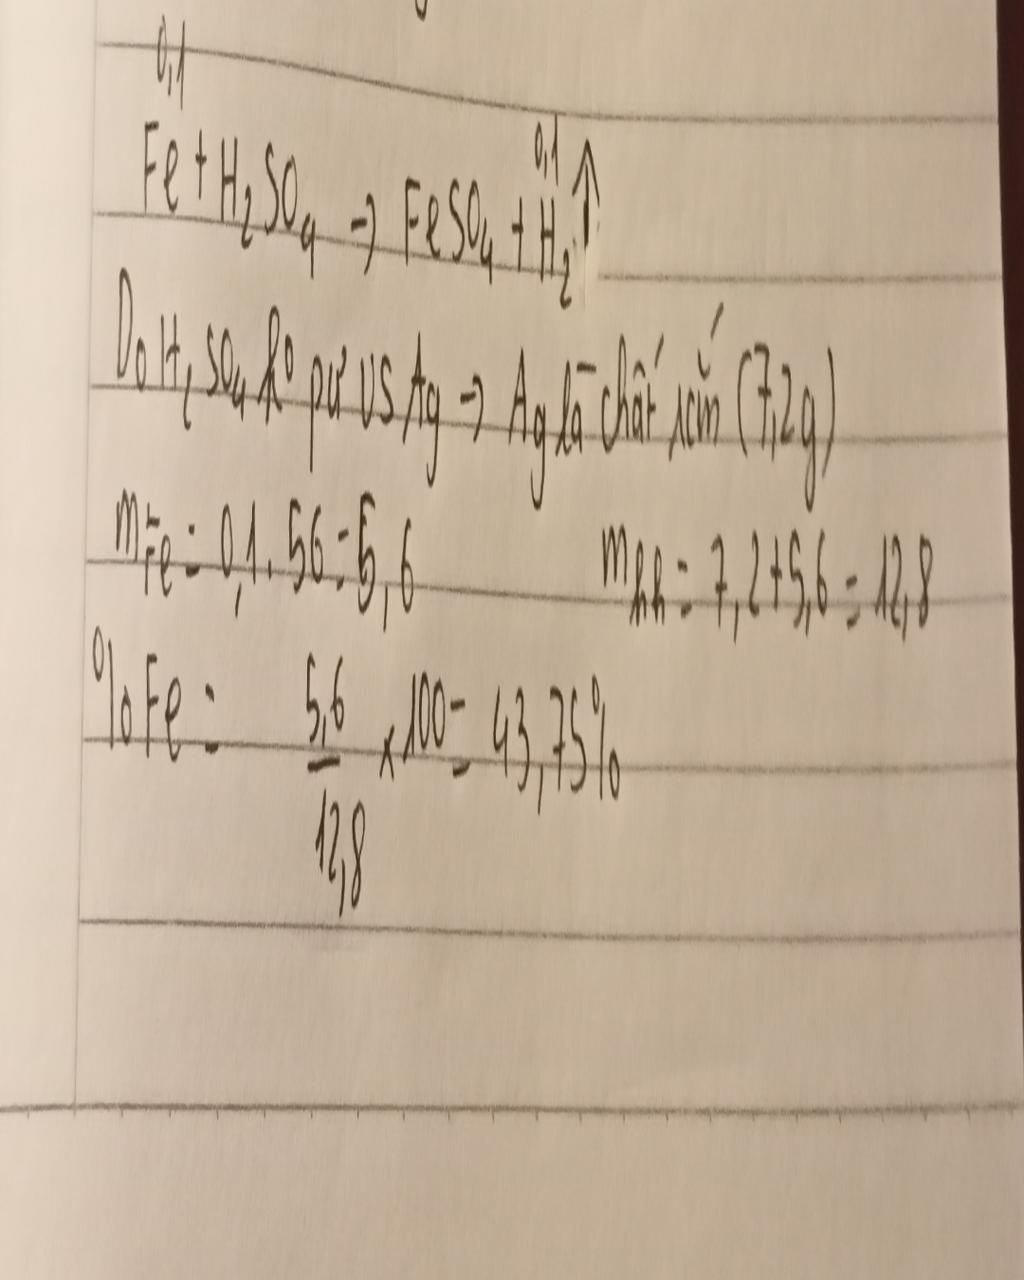 0,1
0,1
Fe + H₂SO₄ → FeSO₄ + H₂ ↑
Do H₂SO₄ ko pư vs Ag → Ag là chất rắn (7,2g)
mFe = 0,1 . 56 = 5,6 mhh = 7,2 + 5,6 = 12,8
%Fe = 5,6/12,8 x 100 = 43,75%